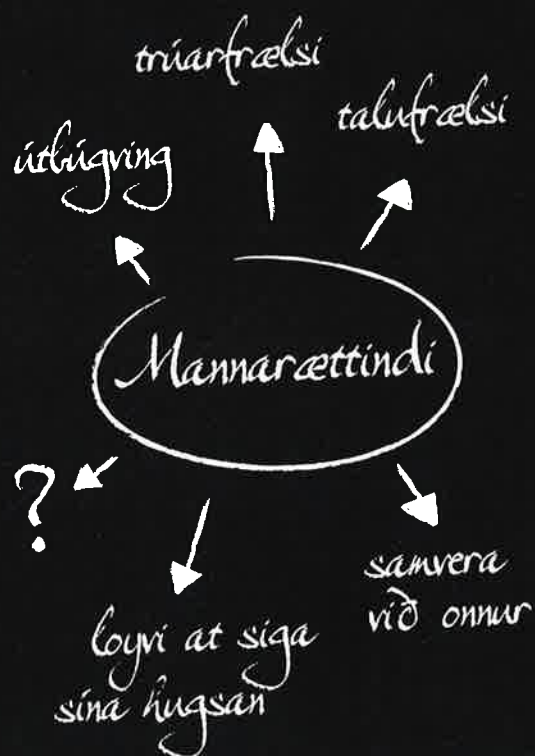 trúarfrælsi
talufrælsi
útbúgving
Mannarættindi
?
samvera
við onnur
loyvi at siga
sína hugsan